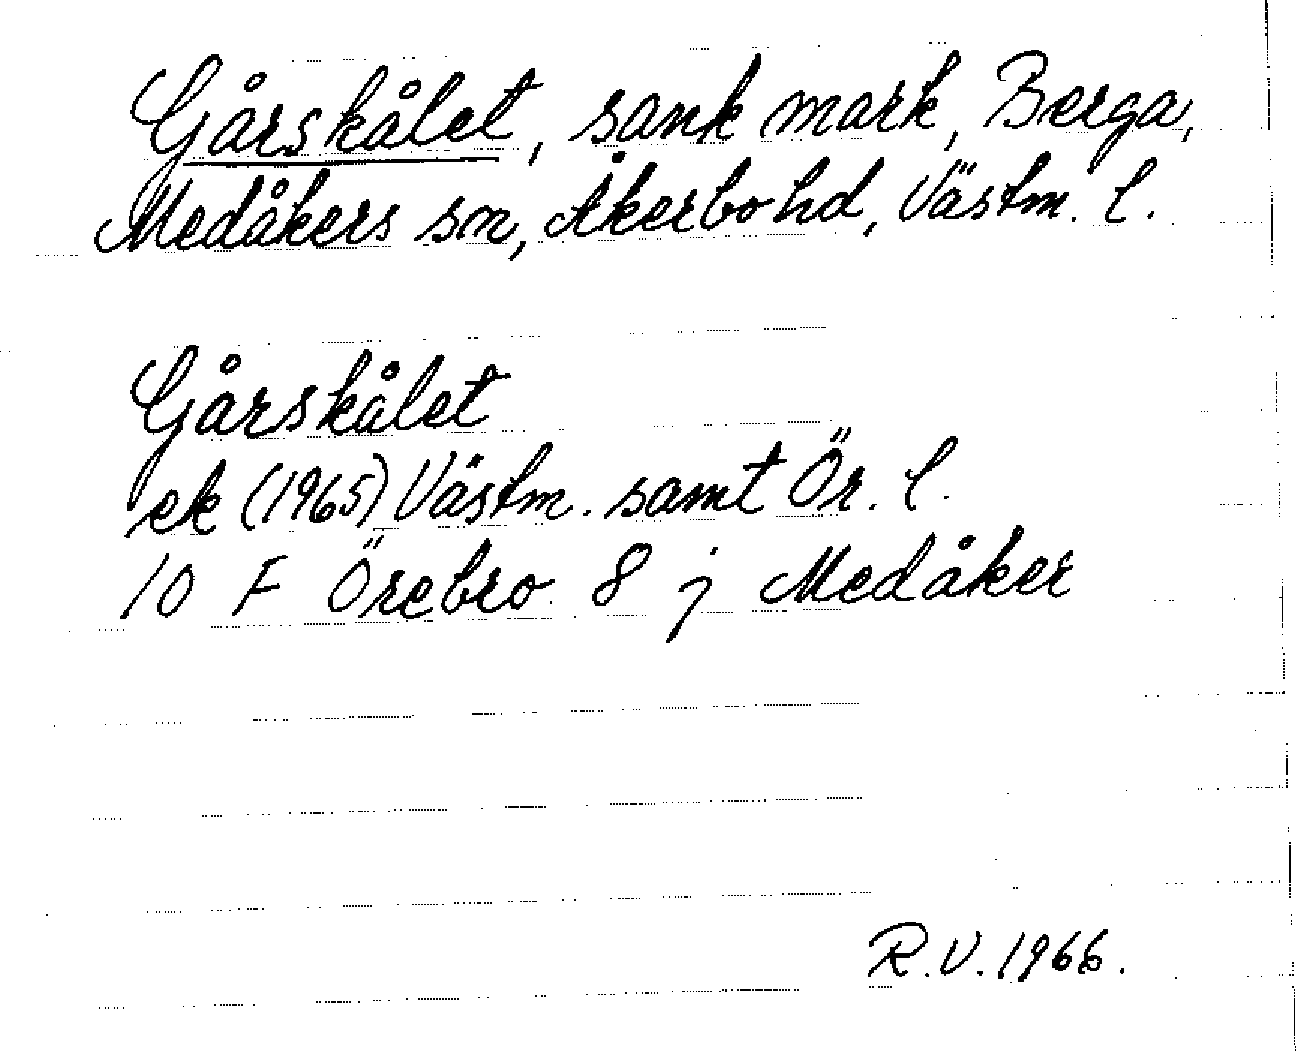 Gårskålet, sank mark, Berga,
Medåkers sn, Åkerbo hd, Västm. l.
Gårskålet
ek (1965) Västm. samt Ör. l.
10 F Örebro 8 j Medåker
R.V. 1966.